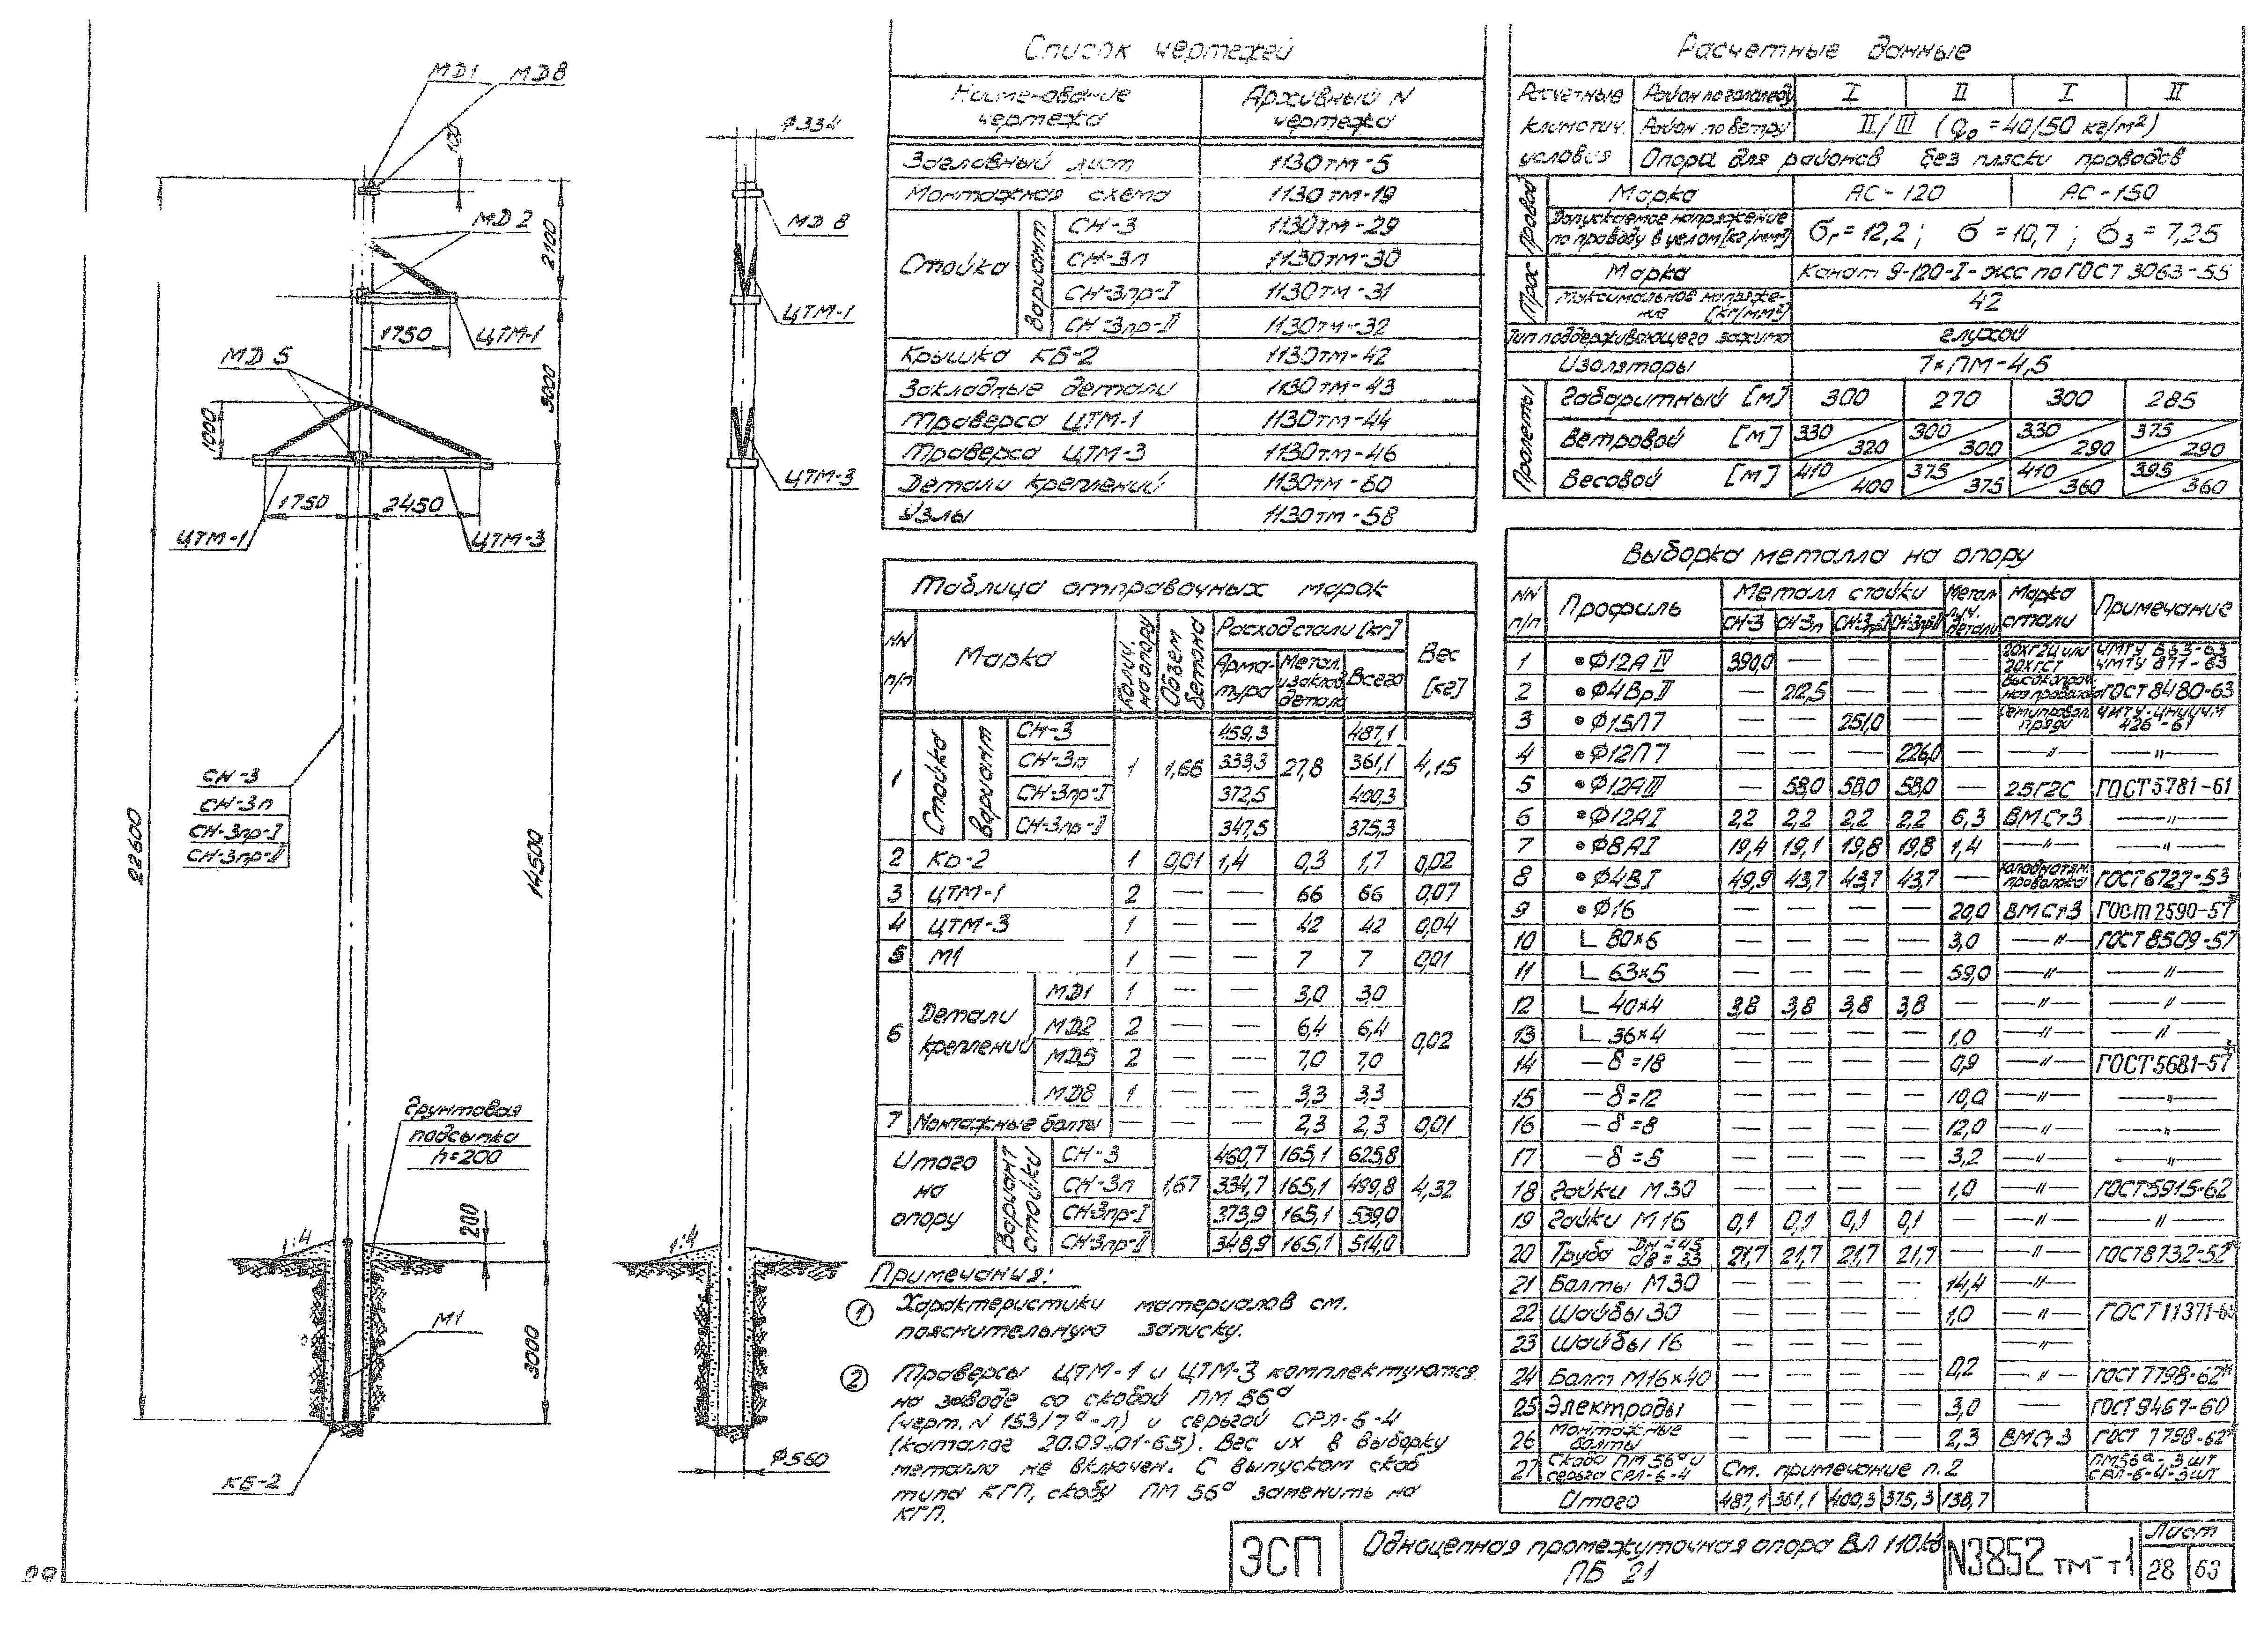 МД1 МД8
100
МД2
2100
1750
ЦТМ-1
МД5
1000
3000
1750 2450
ЦТМ-1 ЦТМ-3
СН-3
СН-3п
СН-3пр-I
СН-3пр-II
22600
14500
Грунтовая
подсыпка
h=200
200
1:4
М1
3000
КБ-2
Ф334
МД8
ЦТМ-1
ЦТМ-3
1:4
Ф560
Список чертежей
Наименование чертежа Архивный N чертежа
Заглавный лист 1130тм-5
Монтажная схема 1130тм-19
Стойка Вариант СН-3 1130тм-29
СН-3п 1130тм-30
СН-3пр-I 1130тм-31
СН-3пр-II 1130тм-32
Крышка КБ-2 1130тм-42
Закладные детали 1130тм-43
Траверса ЦТМ-1 1130тм-44
Траверса ЦТМ-3 1130тм-46
Детали креплений 1130тм-60
Узлы 1130тм-58
Таблица отправочных марок
NN п/п Марка Колич. на опору Объем бетона Расход стали [кг] Вес [кг]
Арматура Метал. и заклад. детали Всего
1 Стойка Вариант СН-3 1 1,66 459,3 27,8 487,1 4,15
СН-3п 333,3 361,1
СН-3пр-I 372,5 400,3
СН-3пр-II 347,5 375,3
2 КБ-2 1 0,01 1,4 0,3 1,7 0,02
3 ЦТМ-1 2 — — 66 66 0,07
4 ЦТМ-3 1 — — 42 42 0,04
5 М1 1 — — 7 7 0,01
6 Детали креплений МД1 1 — — 3,0 3,0 0,02
МД2 2 — — 6,4 6,4
МД5 2 — — 7,0 7,0
МД8 1 — — 3,3 3,3
7 Монтажные болты — — — 2,3 2,3 0,01
Итого на опору Вариант стойки СН-3 1,67 460,7 165,1 625,8 4,32
СН-3п 334,7 165,1 499,8
СН-3пр-I 373,9 165,1 539,0
СН-3пр-II 348,9 165,1 514,0
Примечания:
1 Характеристики материалов см.
пояснительную записку.
2 Траверсы ЦТМ-1 и ЦТМ-3 комплектуются
на заводе со скобой ПМ 56а
(черт. N 153/7а-л) и серьгой СРЛ-6-4
(каталог 20.09.01-65). Вес их в выборку
металла не включен. С выпуском скоб
типа КГП, скобу ПМ 56а заменить на
КГП.
Расчетные данные
Расчетные климатич. условия Район по гололеду I II I II
Район по ветру II/III (q₀ = 40/50 кг/м²)
Опора для районов без пляски проводов
Провод Марка АС-120 АС-150
Допускаемое напряжение по проводу в целом [кг/мм²] σг=12,2; σ =10,7; σэ=7,25
Трос Марка Канат 9-120-I-жс по ГОСТ 3063-55
Максимальное напряжение [кг/мм²] 42
Тип поддерживающего зажима глухой
Изоляторы 7×ПМ-4,5
Пролеты Габаритный [м] 300 270 300 285
Ветровой [м] 330/320 300/300 330/290 375/290
Весовой [м] 410/400 375/375 410/360 395/360
Выборка металла на опору
NN п/п Профиль Металл стойки Марка стали Примечание
СН-3 СН-3п СН-3прI СН-3прII
1 •Ф12АIV 390,0 — — — — 20ХГ2Ц или 20ХГСТ ЧМТУ 853-63 ЧМТУ 877-63
2 •Ф4ВрII — 212,5 — — — ГОСТ 8480-63
3 •Ф15П7 — — 251,0 — — Семипровол. пряди ЧМТУ-ЦНИИЧМ 426-61
4 •Ф12П7 — — — 226,0 — —〃— —〃—
5 •Ф12АIII — 58,0 58,0 58,0 — 25Г2С ГОСТ 5781-61
6 •Ф12АI 2,2 2,2 2,2 2,2 6,3 ВМСт3 —〃—
7 •Ф8АI 19,4 19,1 19,8 19,8 1,4 —〃— —〃—
8 •Ф4ВI 49,9 43,7 43,7 43,7 — Холоднотян. проволока ГОСТ 6727-53
9 •Ф16 — — — — 20,0 ВМСт3 ГОСТ 2590-57
10 L 80×6 — — — — 3,0 —〃— ГОСТ 8509-57
11 L 63×5 — — — — 59,0 —〃— —〃—
12 L 40×4 3,8 3,8 3,8 3,8 — —〃— —〃—
13 L 36×4 — — — — 1,0 —〃— —〃—
14 — δ=18 — — — — 0,9 —〃— ГОСТ 5681-57
15 — δ=12 — — — — 10,0 —〃— —〃—
16 — δ=8 — — — — 12,0 —〃— —〃—
17 — δ=5 — — — — 3,2 —〃— —〃—
18 Гайки М30 — — — — 1,0 —〃— ГОСТ 5915-62
19 Гайки М16 0,1 0,1 0,1 0,1 — —〃— —〃—
20 Труба Dн=45 dв=33 21,7 21,7 21,7 21,7 — —〃— ГОСТ 8732-52
21 Болты М30 — — — — 14,4 —〃—
22 Шайбы 30 — — — — 1,0 —〃— ГОСТ 11371-65
23 Шайбы 16 — — — — 0,2 —〃—
24 Болт М16×40 — — — — —〃— ГОСТ 7798-62*
25 Электроды — — — — 3,0 — ГОСТ 9467-60
26 Монтажные болты — — — — 2,3 ВМСт3 ГОСТ 7798-62*
27 Скоба ПМ 56а и серьга СРЛ-6-4 См. примечание п.2 ПМ56а-3шт СРЛ-6-4-3шт
Итого 487,1 361,1 400,3 375,3 138,7
ЭСП
Одноцепная промежуточная опора ВЛ 110кв
ПБ 21
N3852 тм-т1
Лист
28 63